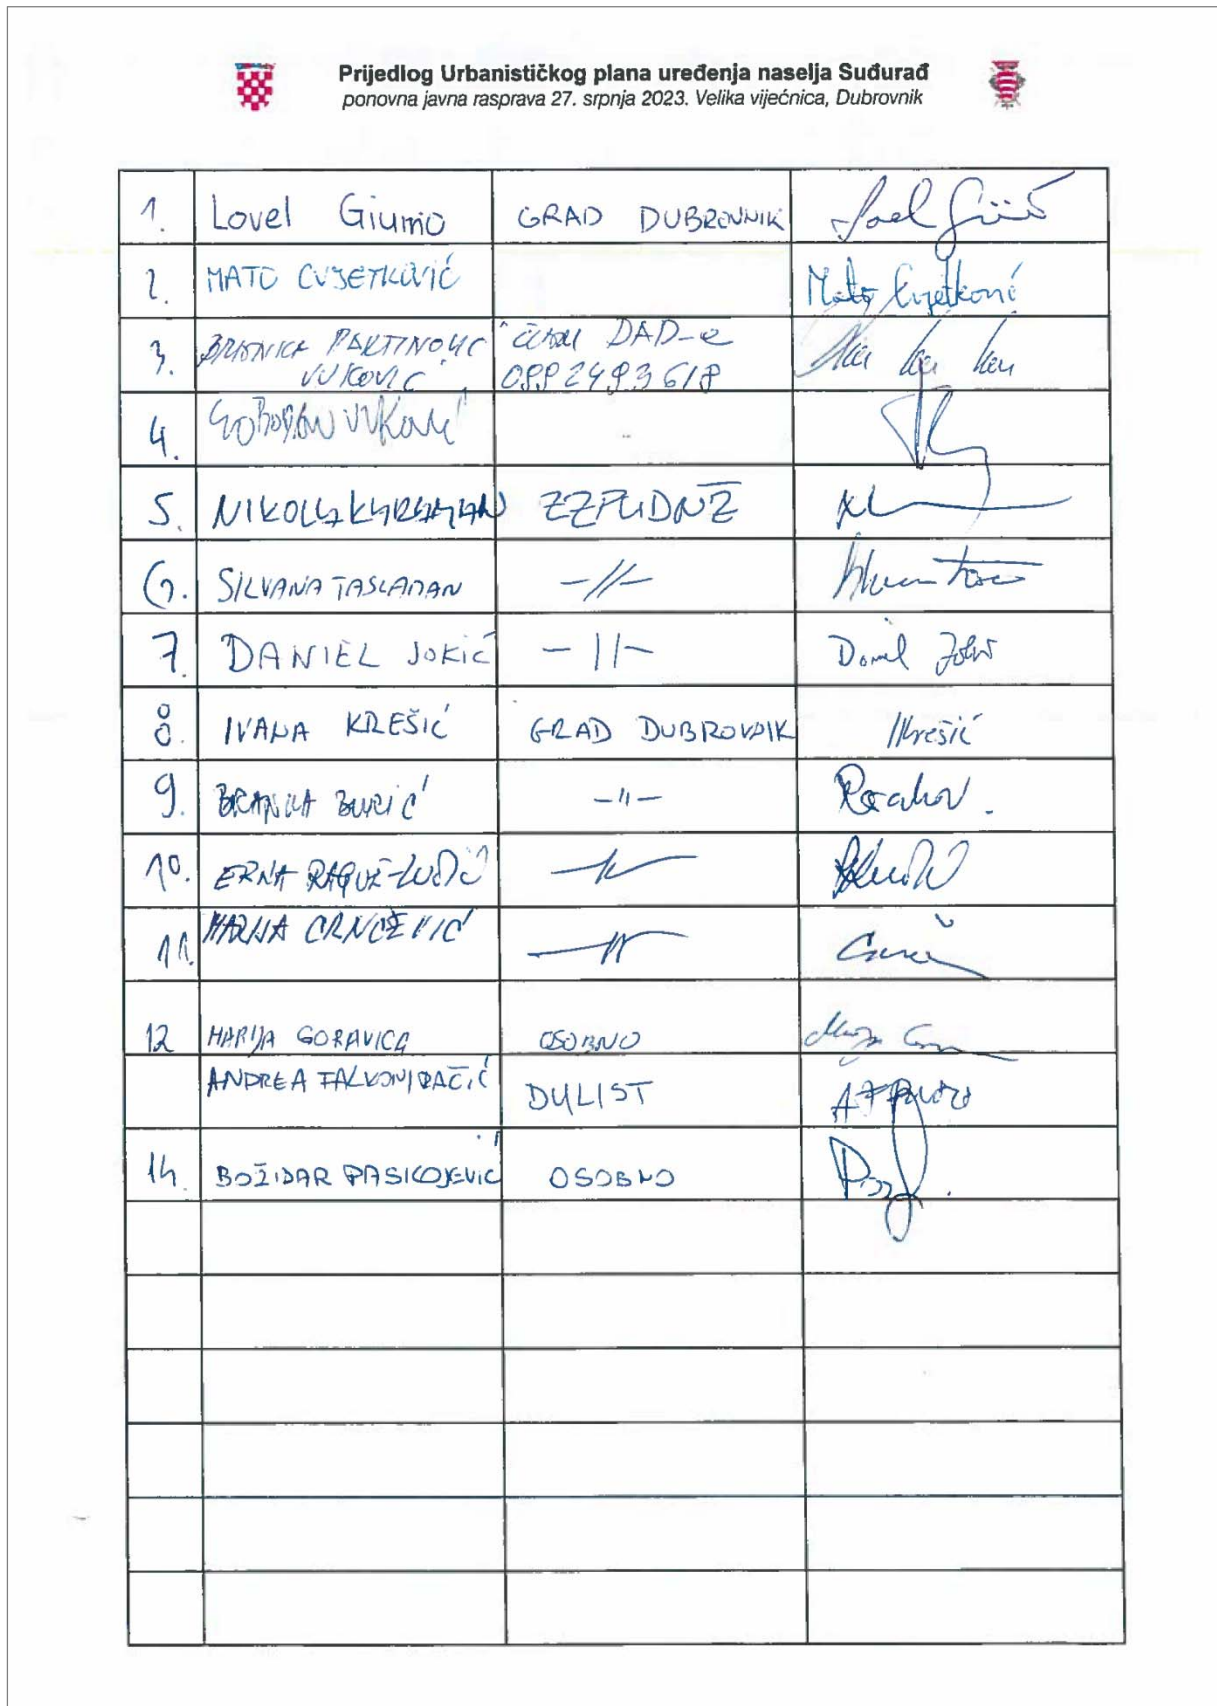 Prijedlog Urbanističkog plana uređenja naselja Suđurađ
ponovna javna rasprava 27. srpnja 2023. Velika vijećnica, Dubrovnik
1. Lovel Giumo GRAD DUBROVNIK
2. MATO CVJETKOVIĆ Mato Cvjetković
3. MARTINOVIĆ DAD-e
VUKOVIĆ 0992493618
4. VUKOVIĆ
5. NIKOLA KARAMAN ZZPUDNŽ
6. SILVANA TASLAMAN -//-
7. DANIEL JOKIĆ -||- Daniel Jokić
8. IVANA KREŠIĆ GRAD DUBROVNIK IKrešić
9. BRANKA BURIĆ -"-
10. ERNA RAGUŽ-LUČIĆ -//-
11. MARIJA CRNČEVIĆ -//-
12 MARIJA GORAVICA OSOBNO
ANDREA FALKONI RAČIĆ DULIST
14. BOŽIDAR PASKOJEVIĆ OSOBNO